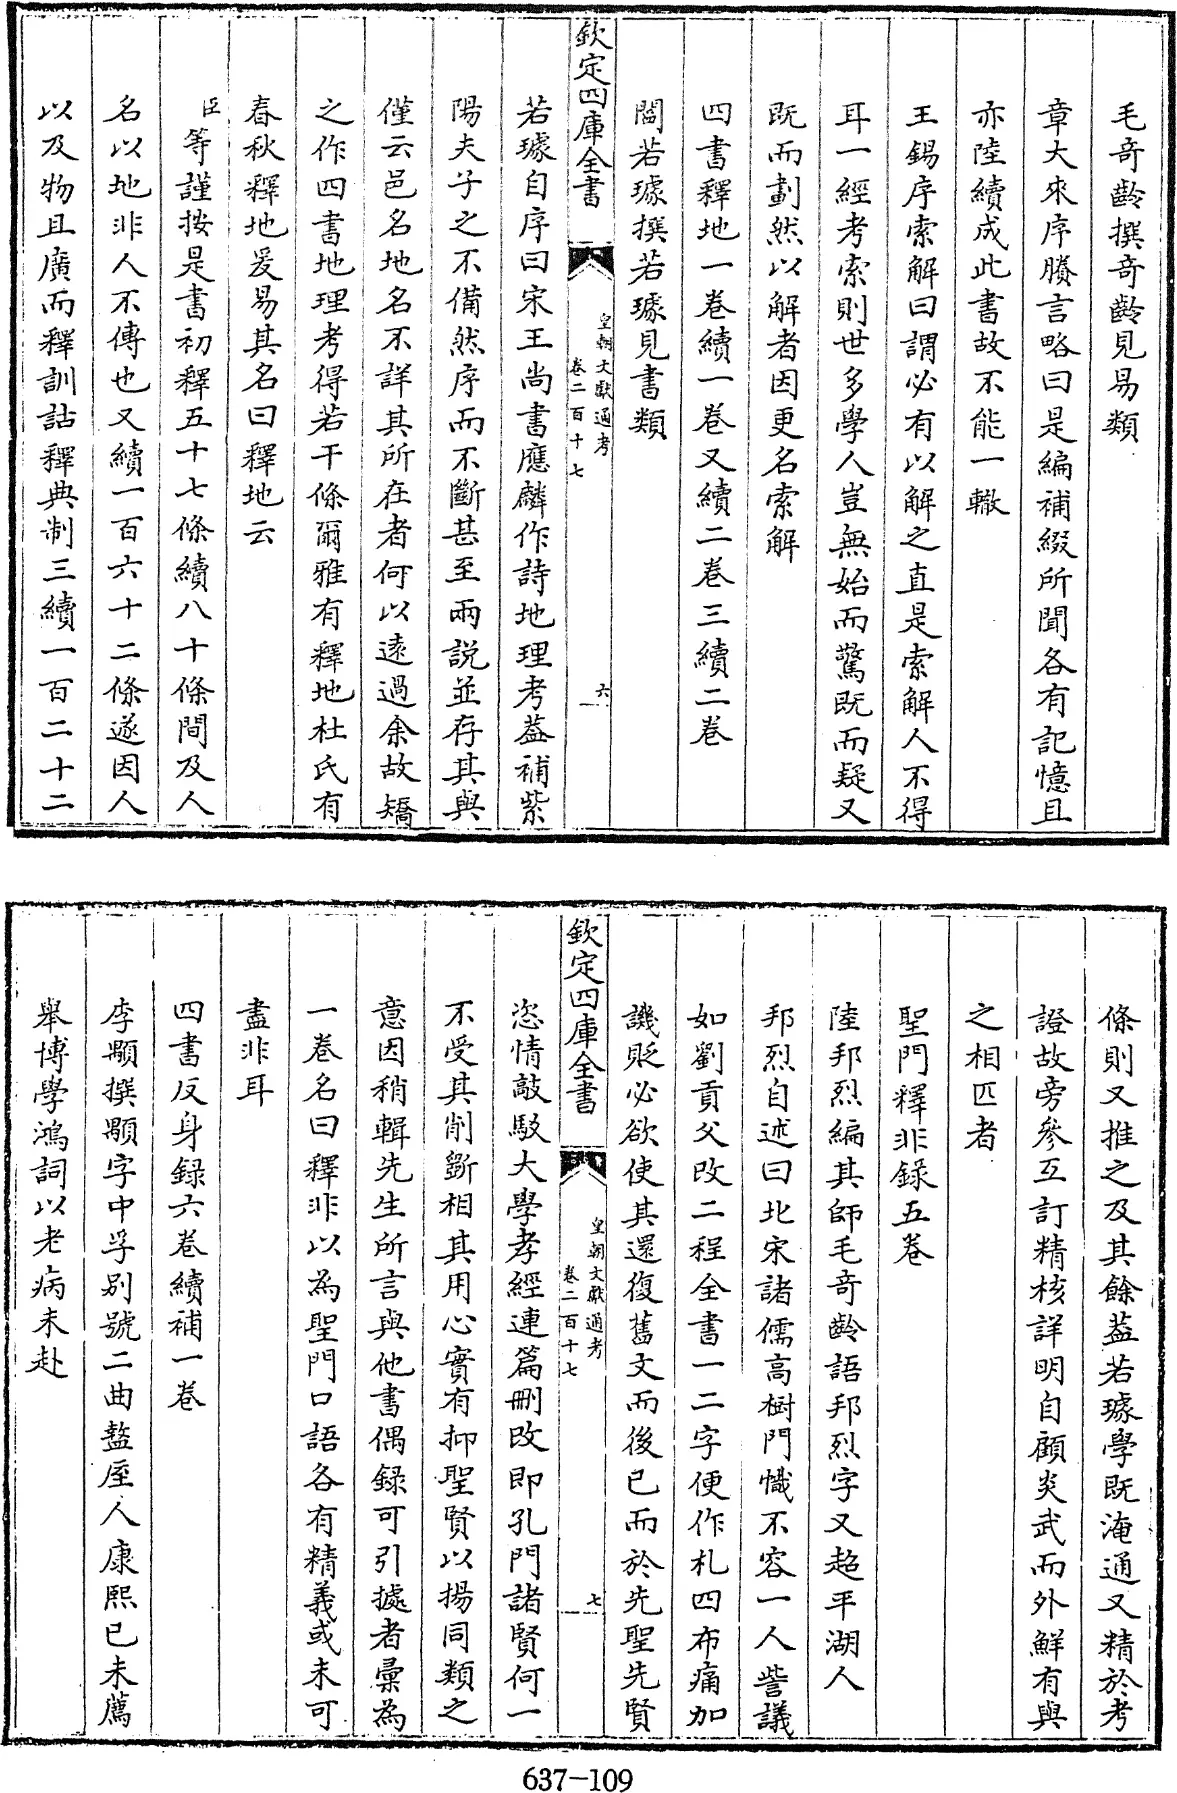 毛奇齡撰奇齡見易類
章大來序賸言略曰是編補綴所聞各有記憶且
亦陸續成此書故不能一轍
王錫序索解曰謂必有以解之直是索解人不得
耳一經考索則世多學人豈無始而驚既而疑又
既而劃然以解者因更名索解
四書釋地一卷續一卷又續二卷三續二卷
閻若璩撰若璩見書類
欽定四庫全書
皇朝文獻通考
卷二百十七
六
若璩自序曰宋王尚書應麟作詩地理考葢補紫
陽夫子之不備然序而不斷甚至兩説並存其與
僅云邑名地名不詳其所在者何以遠過余故矯
之作四書地理考得若干條爾雅有釋地杜氏有
春秋釋地爰易其名曰釋地云
臣等謹按是書初釋五十七條續八十條間及人
名以地非人不傳也又續一百六十二條遂因人
以及物且廣而釋訓詁釋典制三續一百二十二
條則又推之及其餘葢若璩學既淹通又精於考
證故旁參互訂精核詳明自顧炎武而外鮮有與
之相匹者
聖門釋非録五卷
陸邦烈編其師毛奇齡語邦烈字又超平湖人
邦烈自述曰北宋諸儒高樹門幟不容一人訾議
如劉貢父改二程全書一二字便作札四布痛加
譏貶必欲使其還復舊文而後已而於先聖先賢
欽定四庫全書
皇朝文獻通考
卷二百十七
七
恣情敲駁大學孝經連篇刪改即孔門諸賢何一
不受其削斵相其用心實有抑聖賢以揚同類之
意因稍輯先生所言與他書偶録可引據者彚為
一卷名曰釋非以為聖門口語各有精義或未可
盡非耳
四書反身録六卷續補一卷
李顒撰顒字中孚别號二曲盩厔人康熙己未薦
舉博學鴻詞以老病未赴
637-109